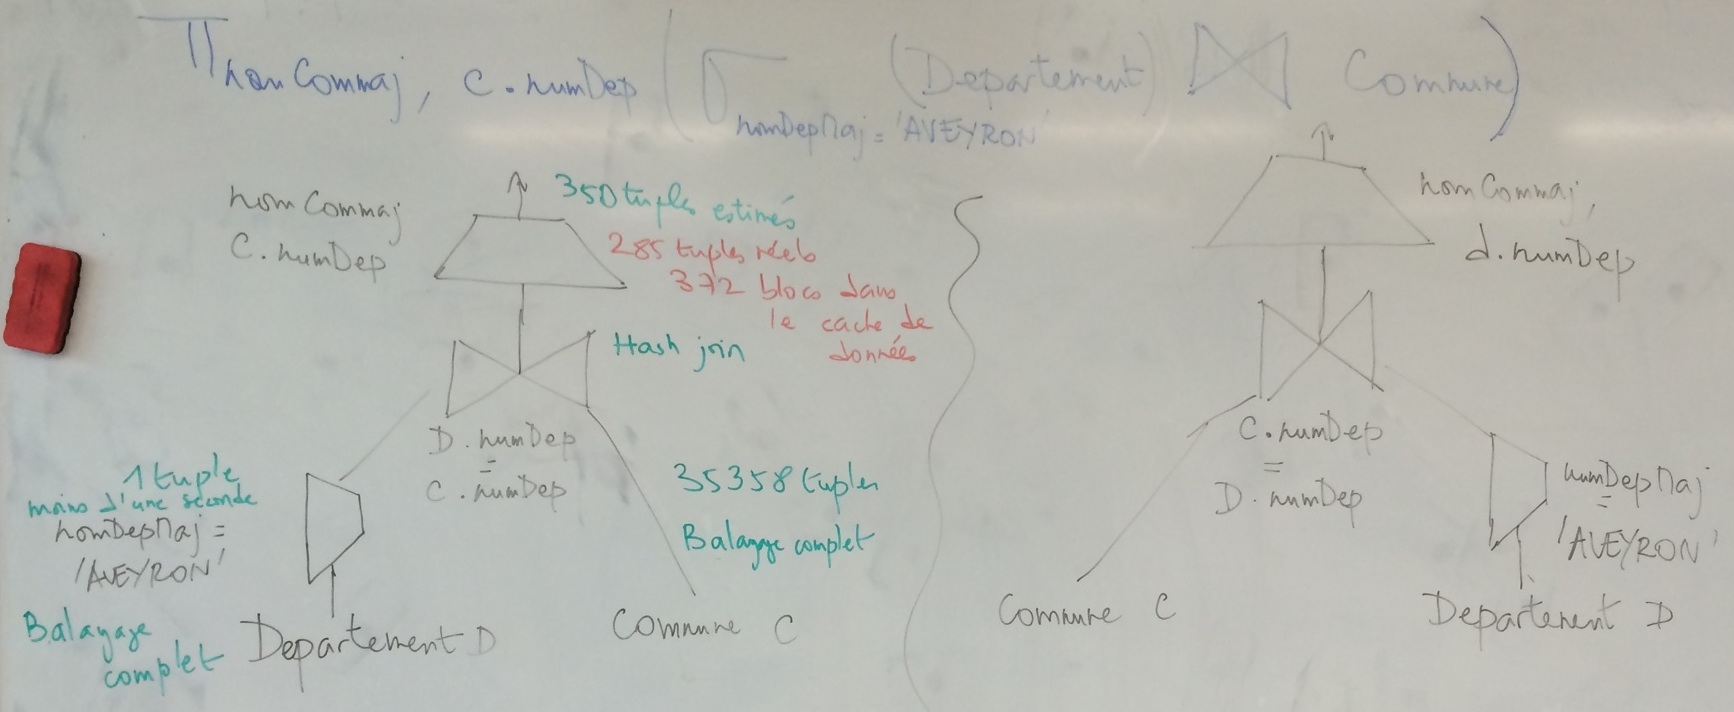 Π nomCommaj, C.numDep ( σ nomDepMaj = 'AVEYRON' (Departement) ⋈ Commune )
nomCommaj
C.numDep
350 tuples estimés
285 tuples réels
372 blocs dans
le cache de
données
Hash join
D.numDep
=
C.numDep
1 tuple
moins d'une seconde
nomDepMaj =
'AVEYRON'
Balayage
complet
Departement D
35358 tuples
Balayage complet
Commune C
nomCommaj,
d.numDep
C.numDep
=
D.numDep
numDepMaj
=
'AVEYRON'
Commune C
Departement D